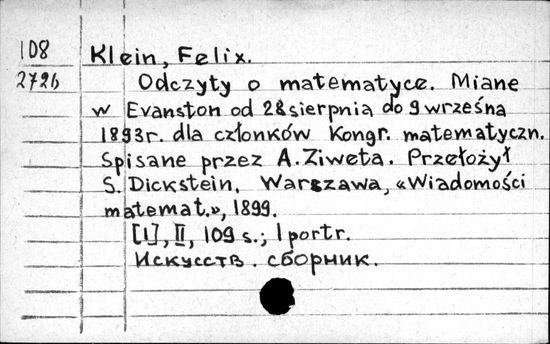 108
2726
Klein, Felix.
Odczyty o matematyce. Miane
w Evanston od 28 sierpnia do 9 wrześna
1893 r. dla członków Kongr. matematyczn.
Spisane przez A. Ziweta. Przełożył
S. Dickstein. Warszawa, «Wiadomości
matemat.», 1899.
[1], II, 109 s.; 1 portr.
Искусств. сборник.